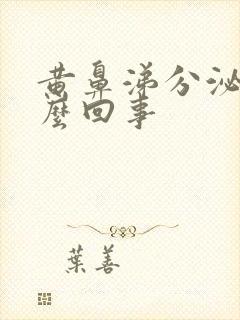 黄鼻涕分泌
麼回事
葉善